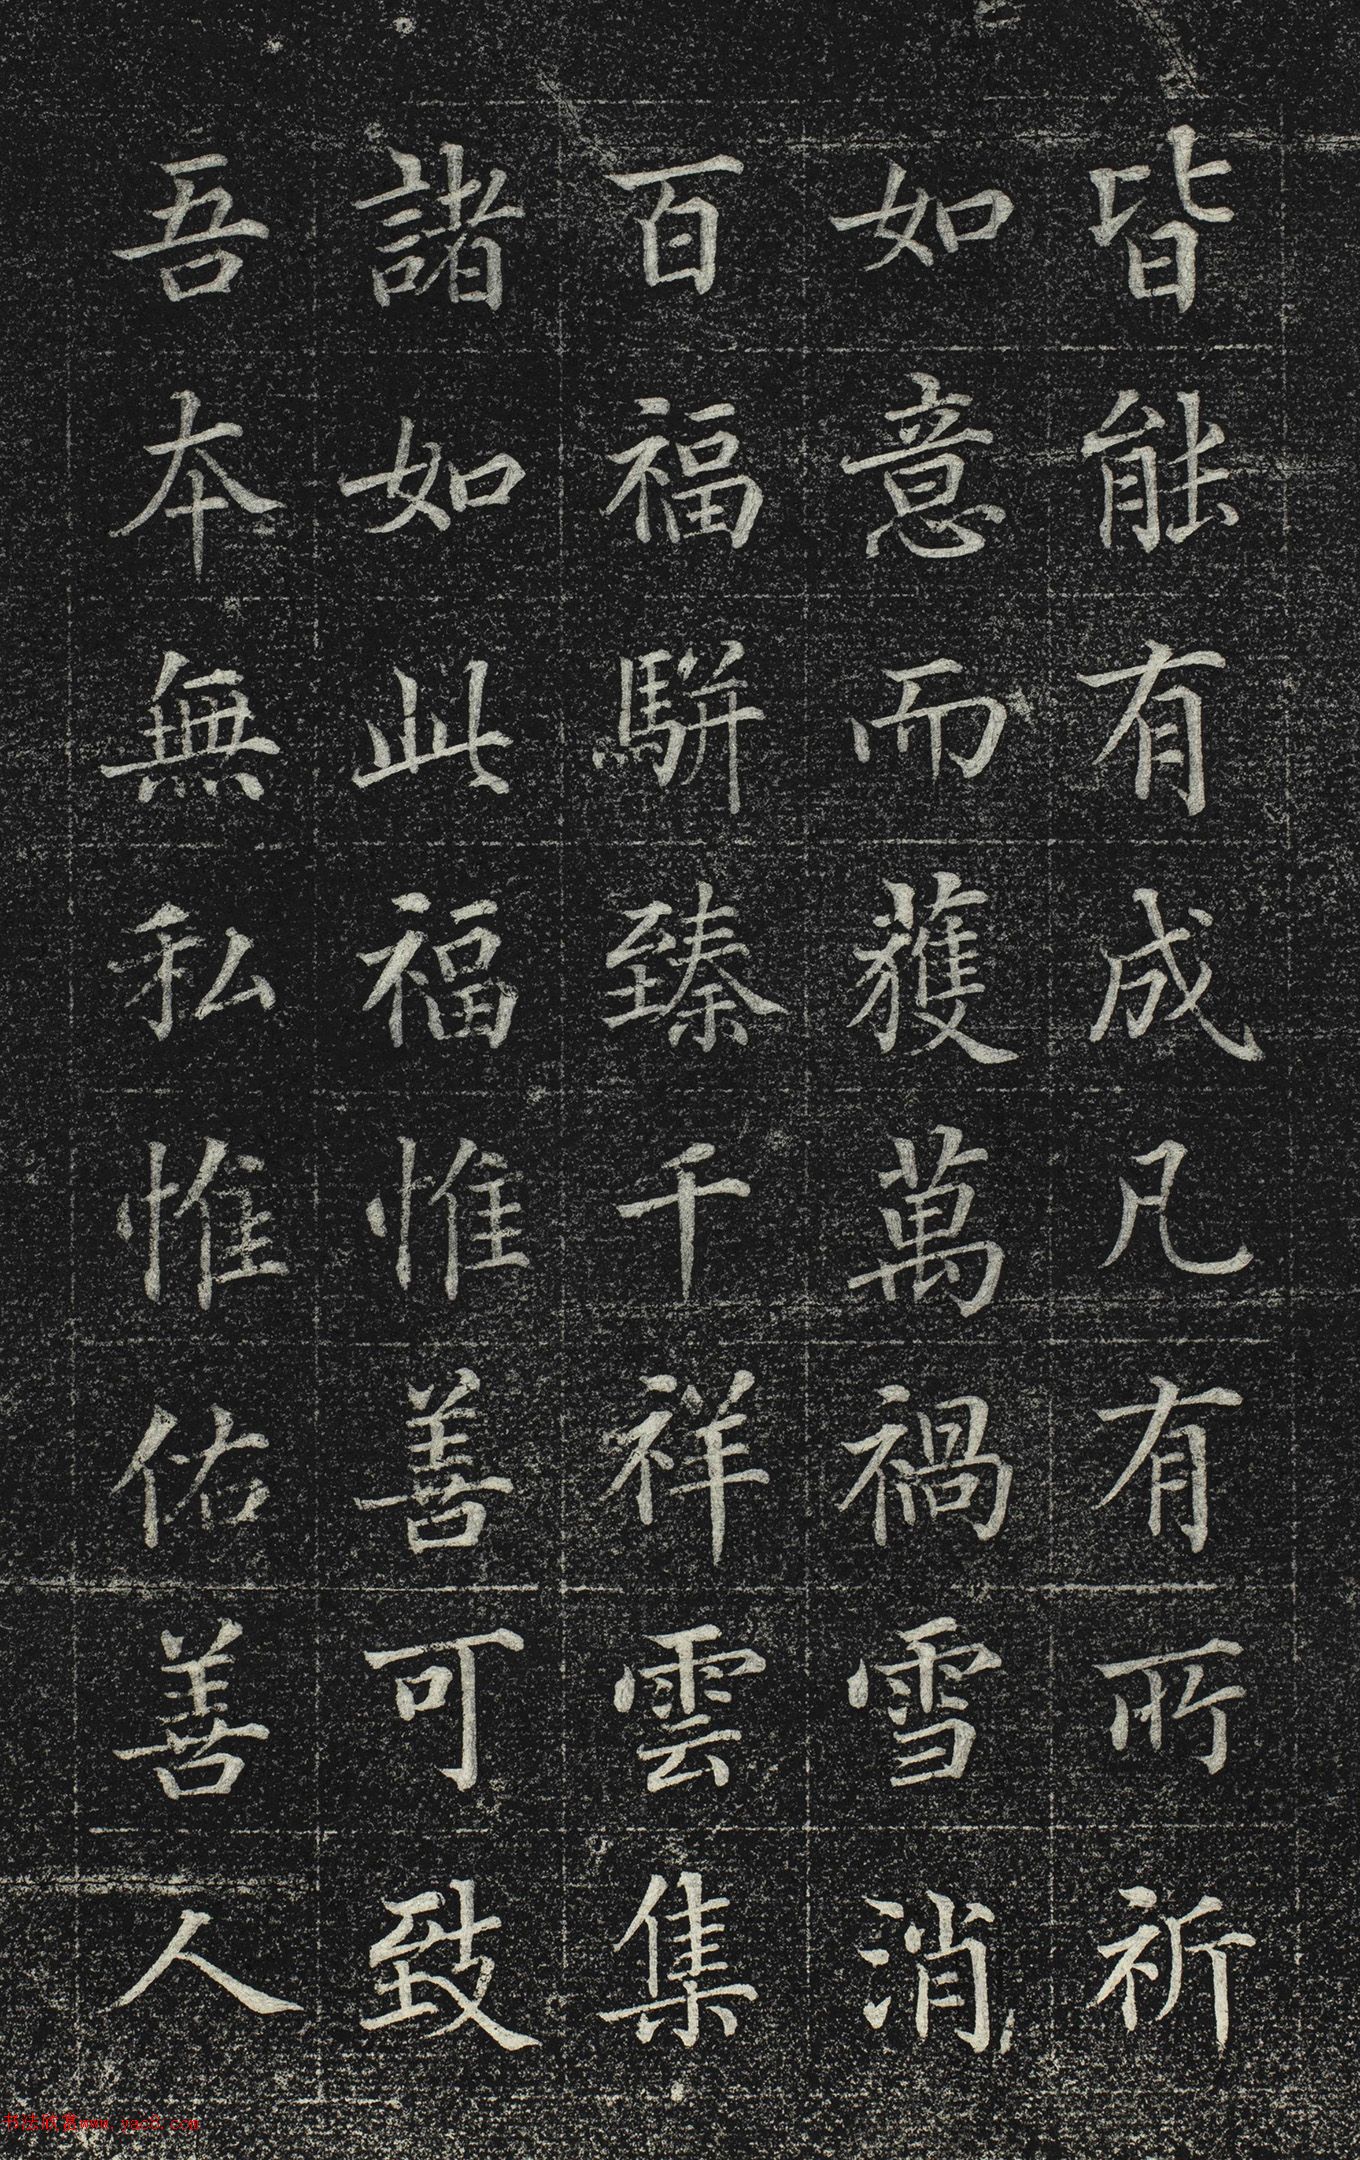 皆能有成凡有所祈
如意而獲萬禍雪消
百福駢臻千祥雲集
諸如此福惟善可致
吾本無私惟佑善人
书法欣赏www.yac8.com